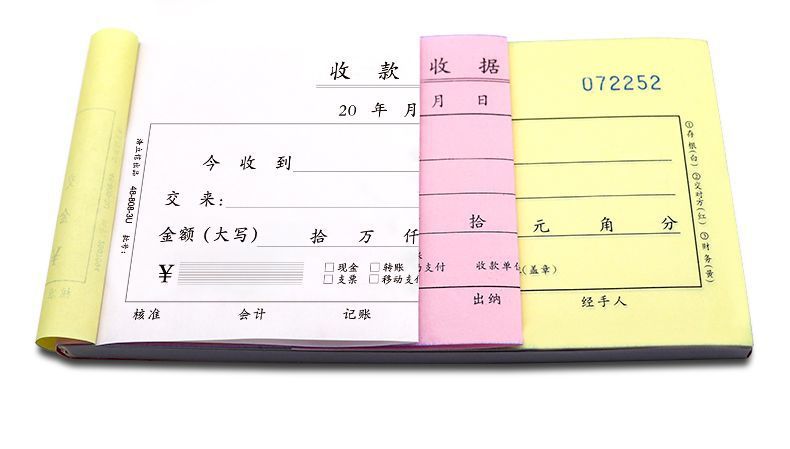 收 款 收 据
072252
20 年 月 日
今 收 到
交 来：
金额（大写） 拾 万 仟 拾 元 角 分
¥ 现金 转账 动支付 收款单位（盖章）
支票 移动支付
核准 会计 记账 出纳 经手人
①存根（白） ②交对方（红） ③财务（黄）
48-B08-3U